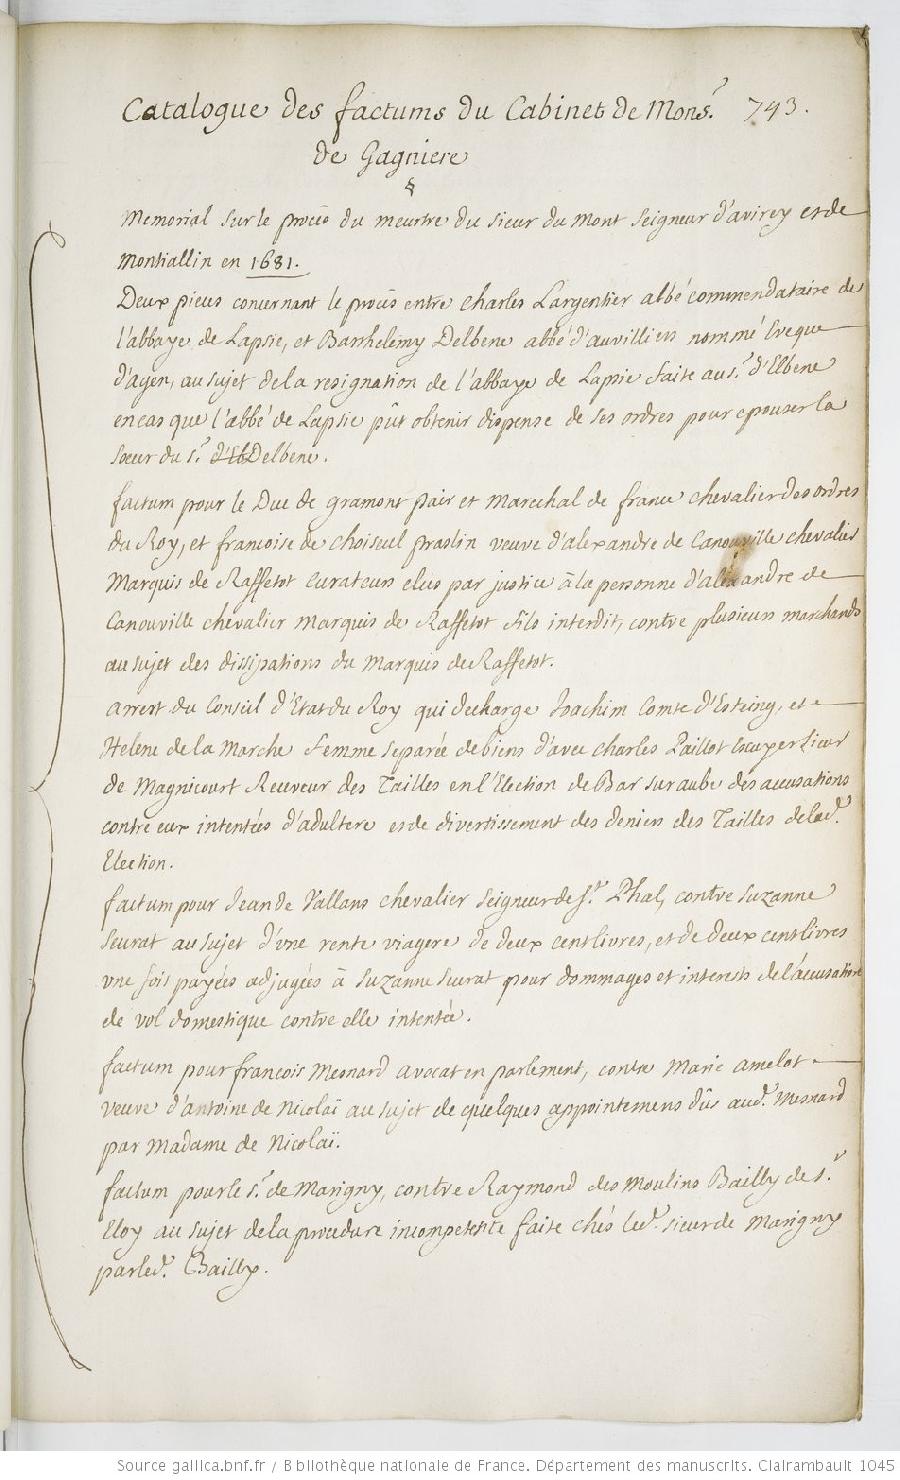 Catalogue des factums du Cabinet de Mons.r 743.
de Gagniere
Memorial sur le procés du meurtre du sieur du Mont seigneur d'avirey et de
Montiallin en 1681.
Deux pieces concernant le procés entre Charles Largentier abbé commendataire de
l'abbaye de Lapsie, et Barthelemy Delbene abbé d'auvilliers nommé Eveque
d'agen, au sujet de la resignation de l'abbaye de Lapsie faite au s.r d'Elbene
en cas que l'abbé de Lapsie pût obtenir dispense de ses ordres pour epouser la
soeur du s.r d'Elb Delbene.
factum pour le Duc de gramont pair et Marechal de france chevalier des ordres
du Roy, et francoise de Choiseul praslin veuve d'alexandre de Canouville chevalier
Marquis de Raffetot curateurs elus par justice à la personne d'alexandre de
Canouville chevalier marquis de Raffetot fils interdit, contre plusieurs marchands
au sujet des dissipations du marquis de Raffetot.
arrest du Conseil d'Etat du Roy qui decharge Joachim Comte d'Estaing, et
Helene de la Marche femme separée de biens d'avec Charles Paillot Escuyer sieur
de Magnicourt Receveur des Tailles en l'Election de Bar sur aube des accusations
contre eux intentées d'adultere et de divertissement des deniers des Tailles de lad.e
Election.
factum pour Jean de Vallans chevalier seigneur de s.t Phal, contre suzanne
seurat au sujet d'vne rente viagere de deux cent livres, et de deux cent livres
vne fois payées adjugées à suzanne suerat pour dommages et interests de l'accusation
de vol domestique contre elle intentée.
factum pour francois Mesnard avocat en parlement, contre Marie amelot
veuve d'antoine de Nicolaï au sujet de quelques appointemens dûs aud.t Mesnard
par Madame de Nicolaï.
factum pour le s.r de Marigny, contre Raymond des Moulins Bailly de s.t
Eloy au sujet de la procedure incompetente faite chés led.t sieur de Marigny
par led.t Bailly.
Source gallica.bnf.fr / Bibliothèque nationale de France. Département des manuscrits. Clairambault 1045